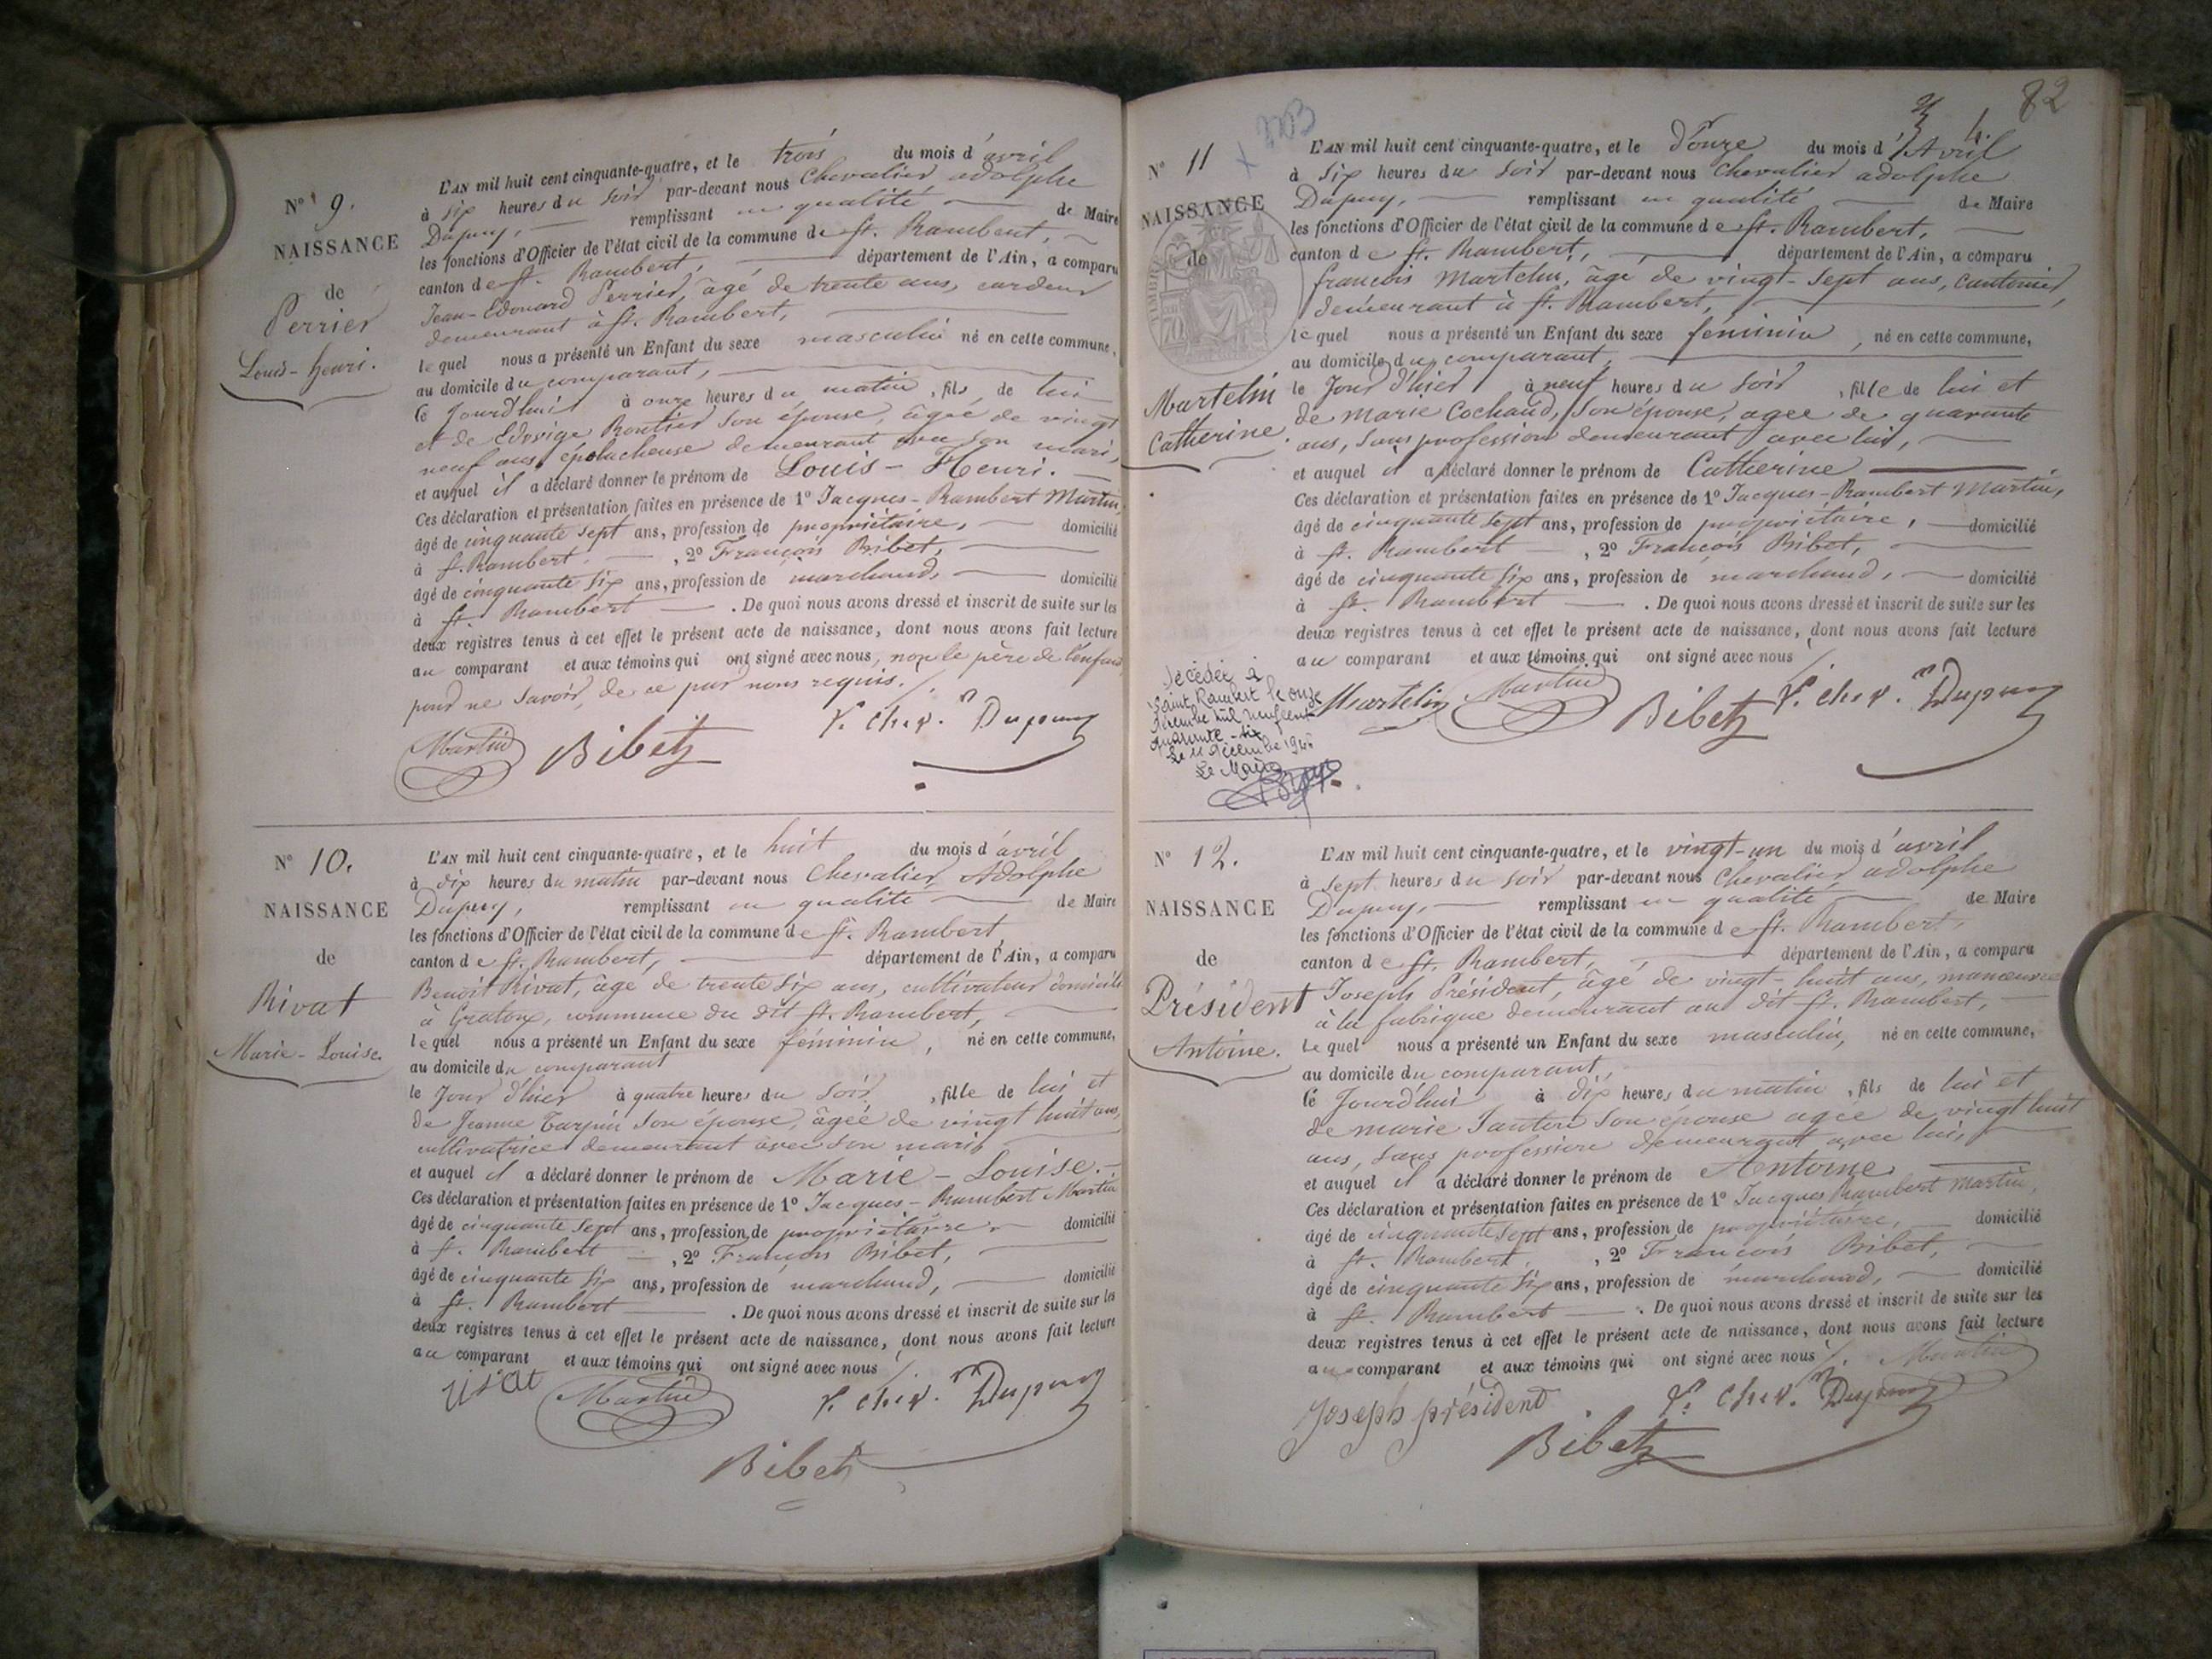 N° 9.
NAISSANCE
de
Perrier
Louis-henri.
L'AN mil huit cent cinquante-quatre, et le trois du mois d'avril
à six heures du soir par-devant nous Chevalier adolphe
Dupuy, remplissant en qualité de Maire
les fonctions d'Officier de l'état civil de la commune de St. Rambert,
canton de St. Rambert, département de l'Ain, a comparu
Jean-Edouard Perrier, âgé de trente ans, cardeur
demeurant à St. Rambert,
lequel nous a présenté un Enfant du sexe masculin né en cette commune,
au domicile du comparant,
ce jourd'hui à onze heures du matin, fils de lui
et de Edvsige Routier son épouse, âgée de vingt
neuf ans, éplucheuse demeurant avec son mari,
et auquel il a déclaré donner le prénom de Louis-Henri.
Ces déclaration et présentation faites en présence de 1° Jacques-Rambert Martin,
âgé de cinquante sept ans, profession de propriétaire, domicilié
à St. Rambert, 2° François Bibet,
âgé de cinquante six ans, profession de marchand, domicilié
à St. Rambert. De quoi nous avons dressé et inscrit de suite sur les
deux registres tenus à cet effet le présent acte de naissance, dont nous avons fait lecture
au comparant et aux témoins qui ont signé avec nous, non le père de l'enfant
pour ne savoir, de ce par nous requis.
Martin Bibet F. cher. Dupuy
N° 10.
NAISSANCE
de
Rivat
Marie-Louise.
L'AN mil huit cent cinquante-quatre, et le huit du mois d'avril
à dix heures du matin par-devant nous Chevalier Adolphe
Dupuy, remplissant en qualité de Maire
les fonctions d'Officier de l'état civil de la commune de St. Rambert
canton de St. Rambert, département de l'Ain, a comparu
Benoit Rivat, âgé de trente six ans, cultivateur domicilié
à Gratoux, commune du dit St. Rambert,
lequel nous a présenté un Enfant du sexe féminin, né en cette commune,
au domicile du comparant
le jour d'hier à quatre heures du soir, fille de lui et
de Jeanne Tarpin son épouse, âgée de vingt huit ans,
cultivatrice demeurant avec son mari
et auquel il a déclaré donner le prénom de Marie-Louise.
Ces déclaration et présentation faites en présence de 1° Jacques-Rambert Martin
âgé de cinquante sept ans, profession de propriétaire domicilié
à St. Rambert, 2° François Bibet,
âgé de cinquante six ans, profession de marchand, domicilié
à St. Rambert. De quoi nous avons dressé et inscrit de suite sur les
deux registres tenus à cet effet le présent acte de naissance, dont nous avons fait lecture
au comparant et aux témoins qui ont signé avec nous
Martin F. cher. Dupuy
Bibet
82
N° 11
NAISSANCE
de
Martelin
Catherine.
L'AN mil huit cent cinquante-quatre, et le Douze du mois d'Avril
à six heures du soir par-devant nous Chevalier adolphe
Dupuy, remplissant en qualité de Maire
les fonctions d'Officier de l'état civil de la commune de St. Rambert,
canton de St. Rambert, département de l'Ain, a comparu
françois Martelin, âgé de vingt-sept ans, cantonier,
demeurant à St. Rambert,
lequel nous a présenté un Enfant du sexe féminin, né en cette commune,
au domicile du comparant,
le jour d'hier à neuf heures du soir, fille de lui et
de marie Cochaud, son épouse, agée de quarante
ans, sans profession demeurant avec lui,
et auquel il a déclaré donner le prénom de Catherine
Ces déclaration et présentation faites en présence de 1° Jacques-Rambert Martin,
âgé de cinquante sept ans, profession de propriétaire, domicilié
à St. Rambert, 2° François Bibet,
âgé de cinquante six ans, profession de marchand, domicilié
à St. Rambert. De quoi nous avons dressé et inscrit de suite sur les
deux registres tenus à cet effet le présent acte de naissance, dont nous avons fait lecture
au comparant et aux témoins qui ont signé avec nous
Martelin Martin Bibet F. cher. Dupuy
Décédée à
Saint Rambert le onze
décembre mil neuf cent
quarante-six
Le 11 décembre 1946
Le Maire
N° 12.
NAISSANCE
de
Président
Antoine.
L'AN mil huit cent cinquante-quatre, et le vingt-un du mois d'avril
à sept heures du soir par-devant nous Chevalier adolphe
Dupuy, remplissant en qualité de Maire
les fonctions d'Officier de l'état civil de la commune de St. Rambert,
canton de St. Rambert, département de l'Ain, a comparu
Joseph Président, âgé de vingt-huit ans, manoeuvre
à la fabrique demeurant au dit St. Rambert,
lequel nous a présenté un Enfant du sexe masculin, né en cette commune,
au domicile du comparant,
ce jourd'hui à dix heures du matin, fils de lui et
de marie Janton son épouse agée de vingt huit
ans, sans profession demeurant avec lui,
et auquel il a déclaré donner le prénom de Antoine
Ces déclaration et présentation faites en présence de 1° Jacques Rambert Martin,
âgé de cinquante sept ans, profession de propriétaire, domicilié
à St. Rambert, 2° François Bibet,
âgé de cinquante six ans, profession de marchand, domicilié
à St. Rambert. De quoi nous avons dressé et inscrit de suite sur les
deux registres tenus à cet effet le présent acte de naissance, dont nous avons fait lecture
au comparant et aux témoins qui ont signé avec nous. Martin
Joseph président F. cher. Dupuy
Bibet